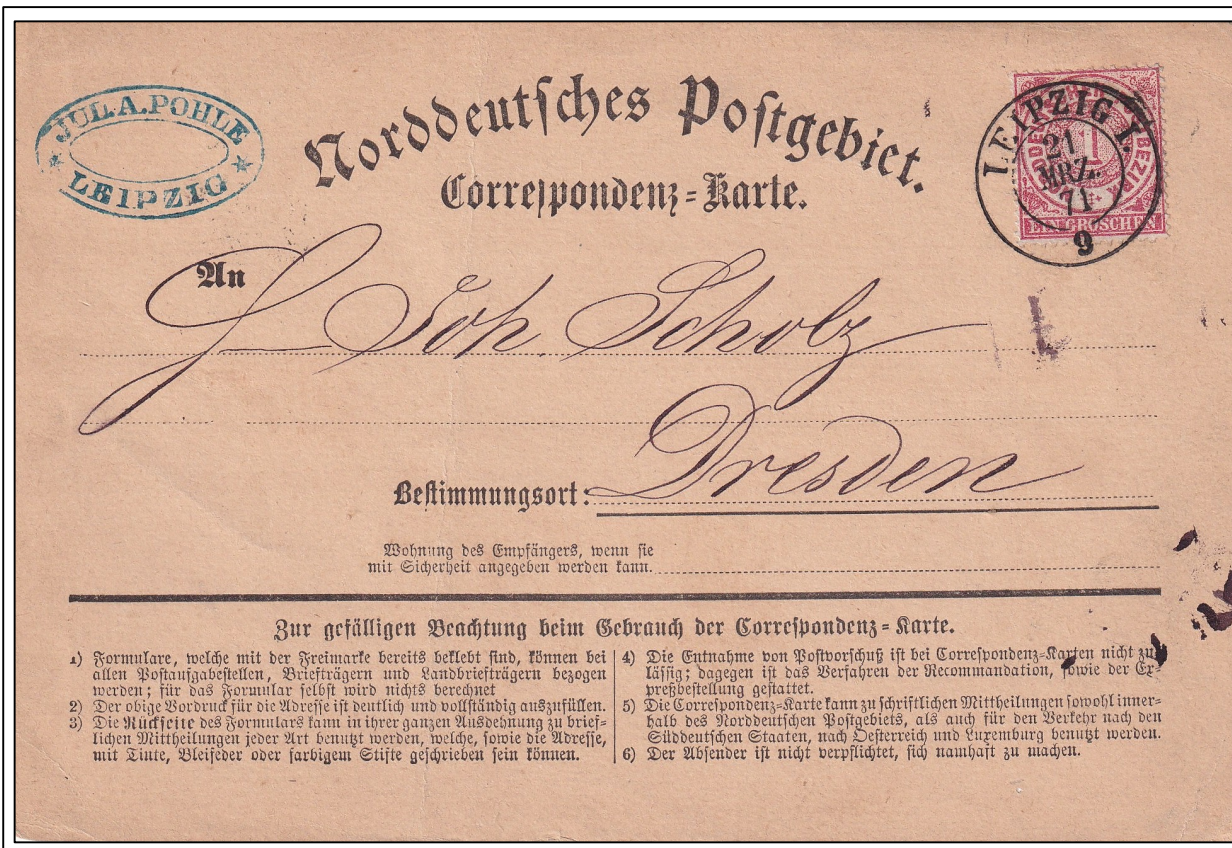 JUL. A. POHLE
LEIPZIG
Norddeutsches Postgebiet.
Correspondenz-Karte.
LEIPZIG I.
21
MRZ.
71
9
1
BEZIRK
EIN GROSCHEN
An
Joh. Scholz
Dresden
Bestimmungsort:
Wohnung des Empfängers, wenn sie
mit Sicherheit angegeben werden kann.
Zur gefälligen Beachtung beim Gebrauch der Correspondenz-Karte.
1) Formulare, welche mit der Freimarke bereits beklebt sind, können bei
allen Postaufgabestellen, Briefträgern und Landbriefträgern bezogen
werden; für das Formular selbst wird nichts berechnet
2) Der obige Vordruck für die Adresse ist deutlich und vollständig auszufüllen.
3) Die Rückseite des Formulars kann in ihrer ganzen Ausdehnung zu brief-
lichen Mittheilungen jeder Art benutzt werden, welche, sowie die Adresse,
mit Tinte, Bleifeder oder farbigem Stifte geschrieben sein können.
4) Die Entnahme von Postvorschuß ist bei Correspondenz-Karten nicht zu
lässig; dagegen ist das Verfahren der Recommandation, sowie der Ex-
preßbestellung gestattet.
5) Die Correspondenz-Karte kann zu schriftlichen Mittheilungen sowohl inner-
halb des Norddeutschen Postgebiets, als auch für den Verkehr nach den
Süddeutschen Staaten, nach Oesterreich und Luxemburg benutzt werden.
6) Der Absender ist nicht verpflichtet, sich namhaft zu machen.